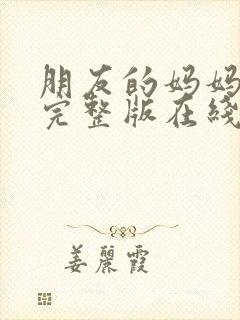 朋友的妈妈
完整版在綫
姜麗霞